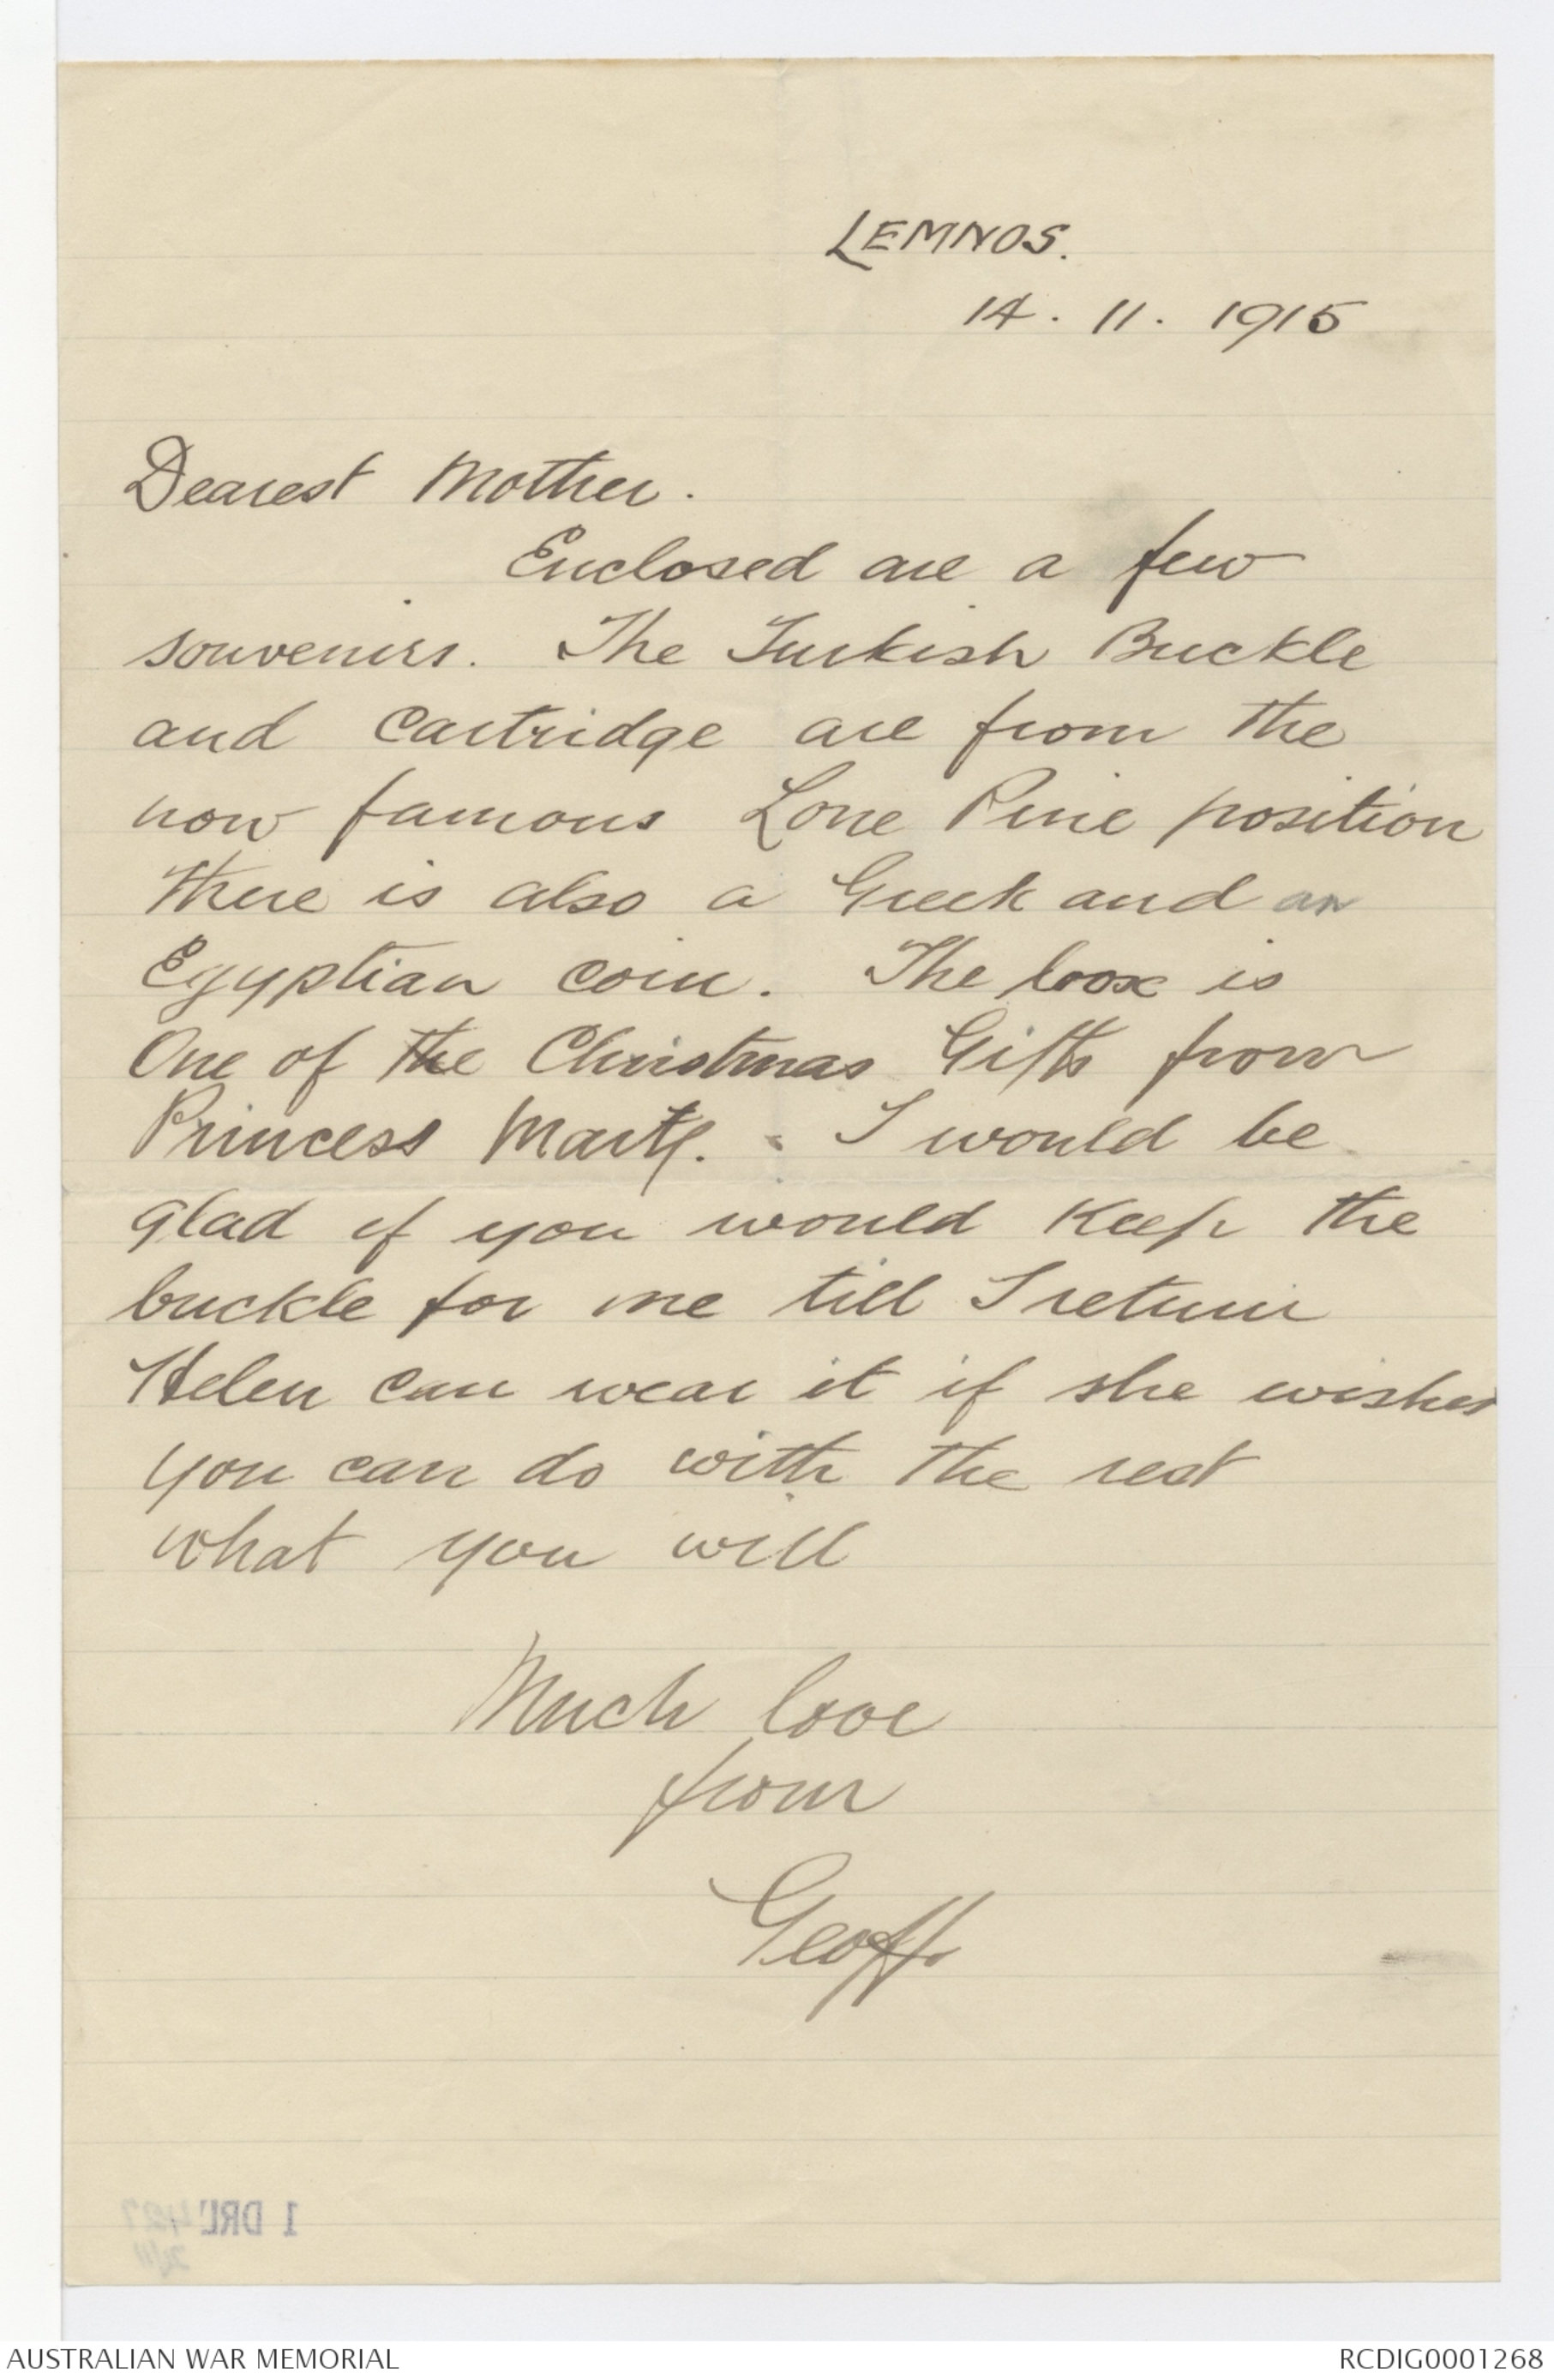 LEMNOS.
14. 11. 1915
Dearest Mother.
Enclosed are a few
souvenirs. The Turkish Buckle
and cartridge are from the
now famous Lone Pine position
There is also a Greek and an
Egyptian coin. The box is
One of the Christmas Gifts from
Princess Mary. I would be
glad if you would keep the
buckle for me till I return
Helen can wear it if she wishes
you can do with the rest
what you will
Much love
from
Geoff
1 DRL 427
AUSTRALIAN WAR MEMORIAL
RCDIG0001268